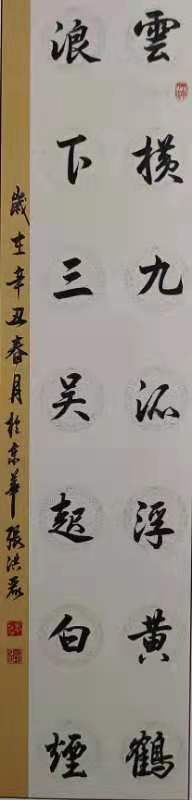 雲橫九派浮黄鶴
浪下三吴起白煙
歲在辛丑春月於京華張洪